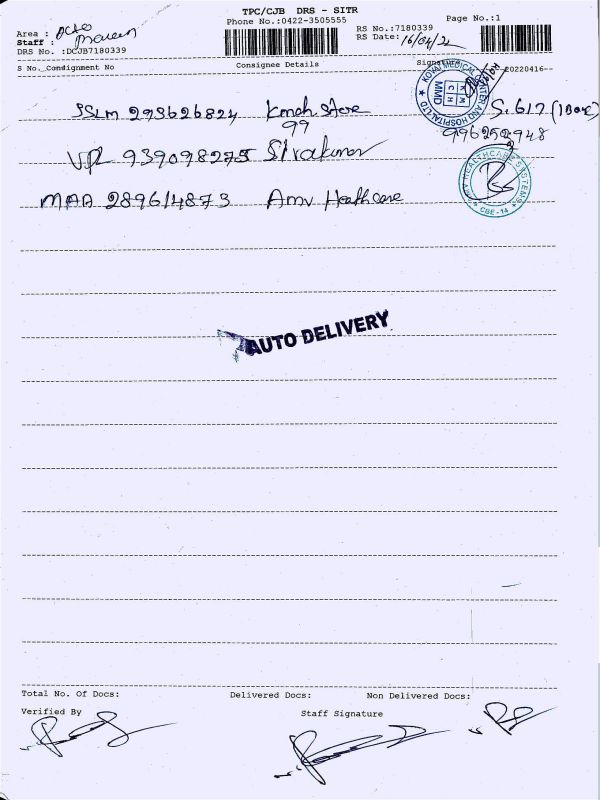 TPC/CJB DRS - SITR
Phone No.:0422-3505555
Page No.:1
Area :
Staff :
DRS No. :DCJB7180339
RS No.:7180339
RS Date: 16/04/22
S No._Consignment No Consignee Details Signature 20220416--
KOVAI MEDICAL CENTER AND HOSPITAL LTD
MMD
KMCH
SSLM 293626824 Kmch Store S. 617 (1 Box)
99
VPL 939098275
HEALTHCARE SYSTEMS
CBE-14
MAA 289614873 Amv Healthcare
AUTO DELIVERY
Total No. Of Docs: Delivered Docs: Non Delivered Docs:
Verified By Staff Signature